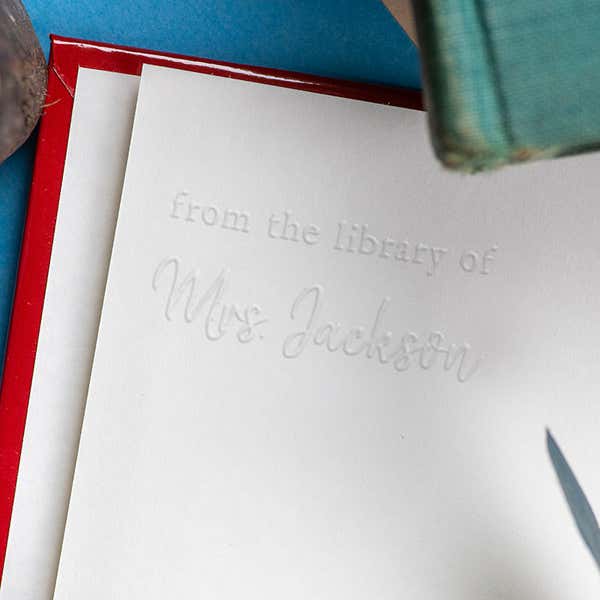 from the library of
Mrs. Jackson